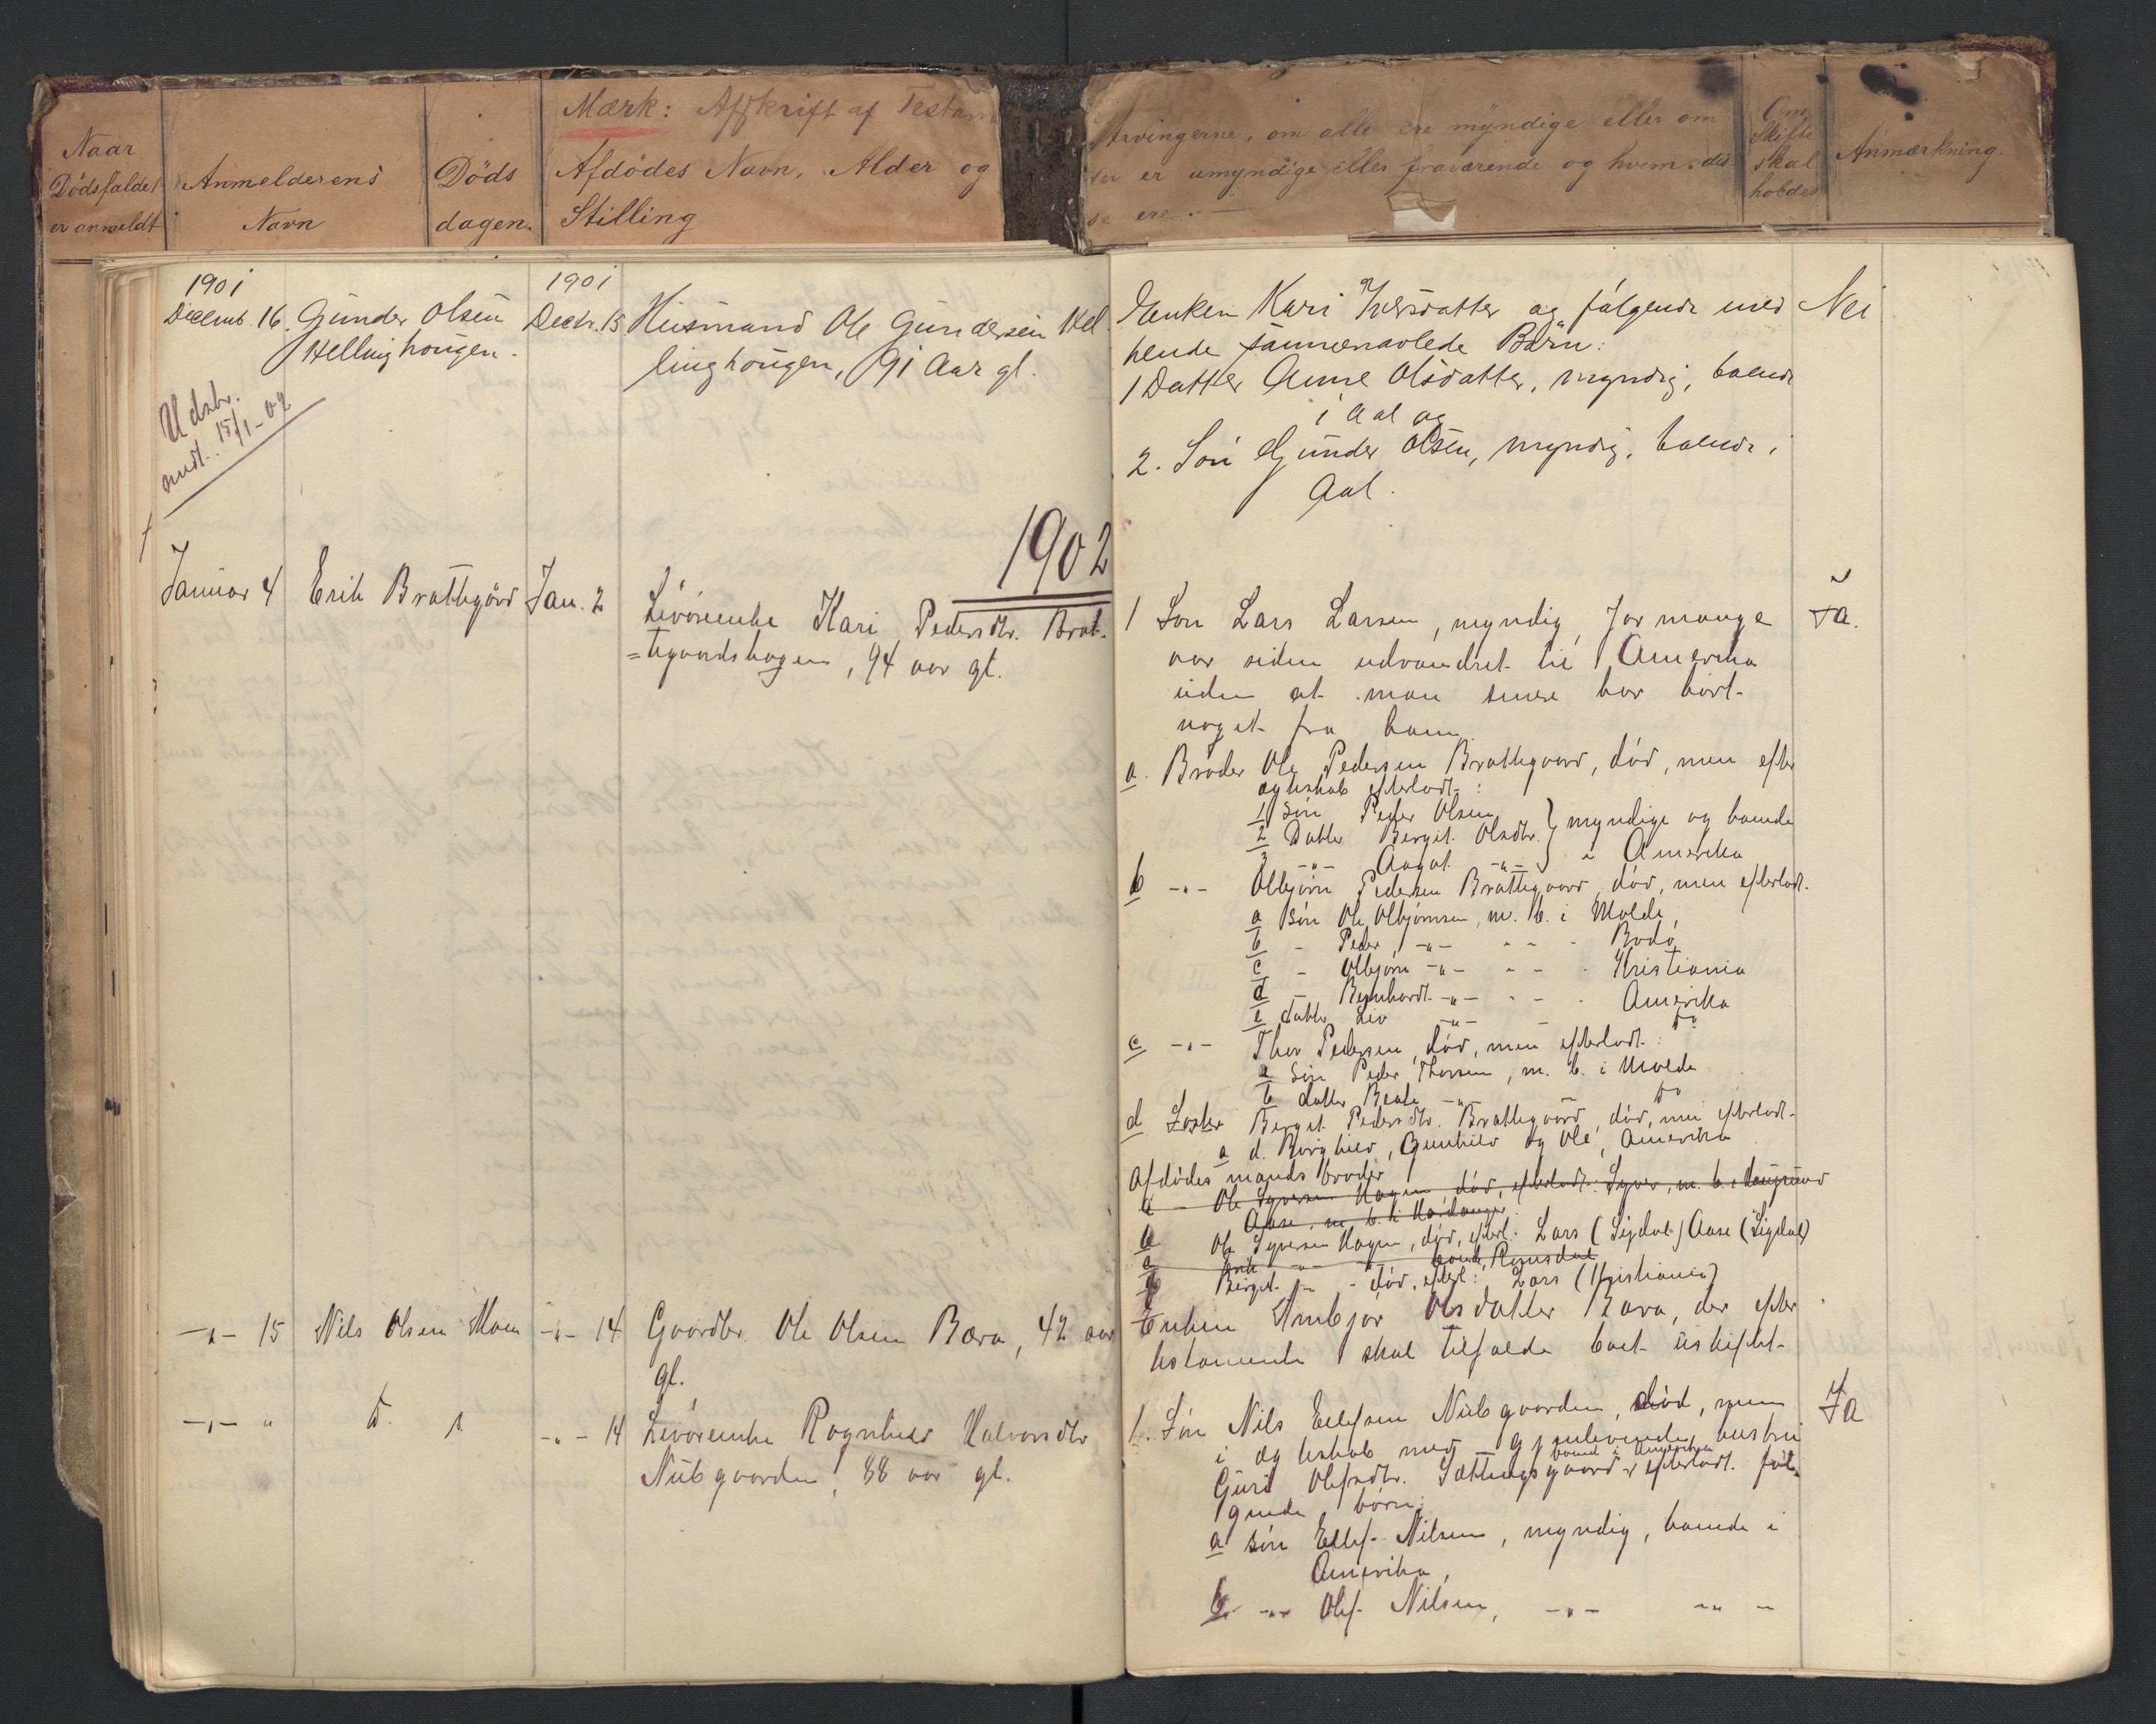 Mærk: Afskrift af Testam
Naar
Dödsfaldet
er anmeldt
Anmelderens
Navn
Döds
dagen.
Afdödes Navn, Alder og
Stilling
Arvingerne, om alle ere myndige eller om
er umyndige eller fraværende og hvem dis
se ere. —
Om
Skifte
skal
holdes
Anmærkning.
1901
Decemb. 16.
Gunder Olsen
Hellinghougen.
1901
Decbr. 15
Husmand Ole Gundersen Hel
linghougen, 91 Aar gl.
Udskr.
sendt. 15/1-02
Enken Kari Iversdatter og følgende med
hende sammenavlede Børn:
1 Datter Anne Olsdatter, myndig, boende
i Aal og
2. Søn Gunder Olsen, myndig, boende i
Aal.
Nei
1902
Januar 4
Erik Brattegård
Jan. 2
Livørenke Kari Pedersdtr. Brat-
=tegaardshagen, 94 aar gl.
1 Søn Lars Larsen, myndig, for mange
aar siden udvandret til Amerika
uden at man senere har hørt
noget fra ham.
Ja.
a. Broder Ole Pedersen Brattegaard, død, men efter
ægteskab efterladt:
1 Søn Peder Olsen
2 Datter Bergit Olsdtr. } myndige og boende
3 -"- Aagot -"- } i Amerika
b -"- Olbjørn Pedersen Brattegaard, død, men efterladt.
a Søn Ole Olbjørnsen, m. b. i Molde,
b - Peder -"- - - - Bodø
c - Olbjørn -"- - - - Kristiania
d - Bernhardt -"- - - - Amerika
e datter Liv -"- - Do
c -"- Thor Pedersen, død, men efterladt:
a Søn Peder Thorsen, m. b. i Molde
b datter Beate -"- Do
d Søster Bergit Pedersdtr. Brattegaard, død, men efterladt
a d. Borghild, Gunhild og Ole, Amerika
Afdødes mands broder
a Ole Syversen Hagen, død, efterladt: Syver, m. b. i Haugesund
Aase, m. b. i Hardanger
a Ole Syversen Hagen, død, efterl. Lars (Sigdal) Aase (Sigdal)
Erik -"- - boende Romsdal
b Bergit -"- - død, efterl: Lars (Kristiania)
-"- 15
Nils Olsen Moen
-"- 14
Gaardbr. Ole Olsen Bæra, 42 aar
gl.
Enken Ambjør Olsdatter Bæra, der efter
testamente skal tilfalde boet uskiftet
-"- "
D. s
-"- 14
Livørenke Ragnhild Halvorsdtr
Nubgaarden, 88 aar gl.
1. Søn Nils Ellefsen Nubgaarden, død, men
i ægteskab med gjenlevende hustru
boende i Amerika
Guri Olefsdtr. Sættingsgaard efterladt føl-
gende børn:
a søn Ellef Nilsen, myndig, boende i
Amerika,
b. -"- Olef Nilsen, -"- -"- -
Ja